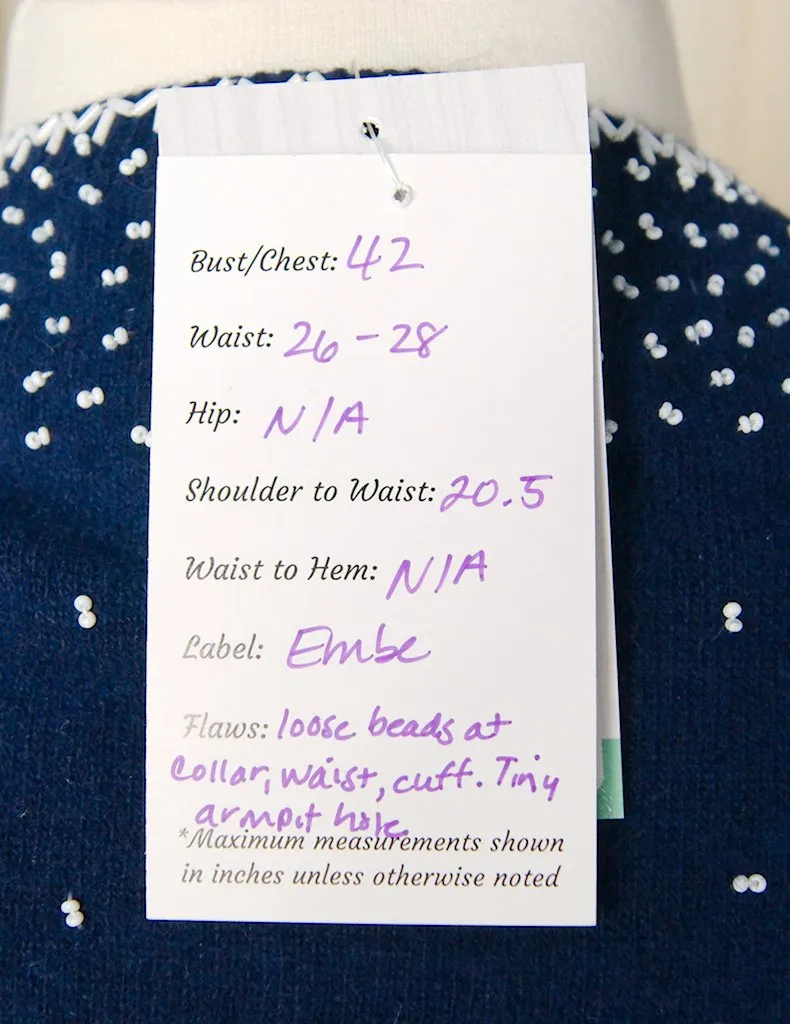 Bust/Chest: 42
Waist: 26 - 28
Hip: N/A
Shoulder to Waist: 20.5
Waist to Hem: N/A
Label: Embe
Flaws: loose beads at
collar, waist, cuff. Tiny
armpit hole
*Maximum measurements shown
in inches unless otherwise noted